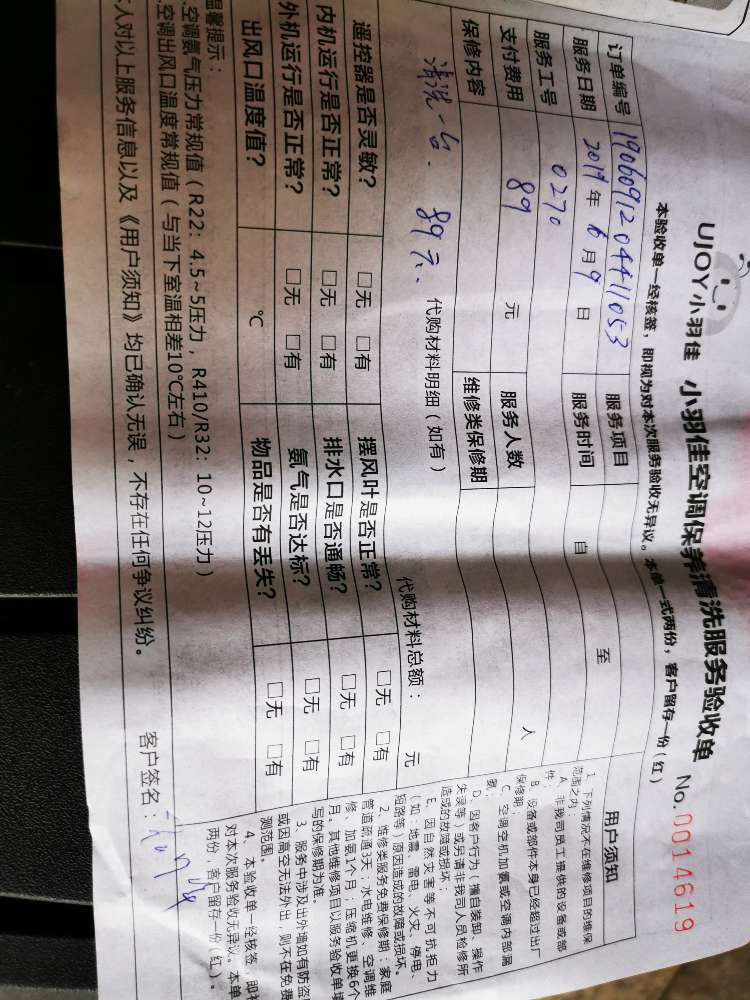 UJOY小羽佳 小羽佳空调保养清洗服务验收单 No. 0014619
本验收单一经核签，即视为对本次服务验收无异议。本单一式两份，客户留存一份(红)
订单编号 19060912044411053 服务项目
服务日期 2019年6月9日 服务时间 自 至
服务工号 0270
支付费用 89 元 服务人数 人
保修内容 维修类保修期
清洗一台. 89元. 代购材料明细(如有) 代购材料总额: 元
遥控器是否灵敏? □无 □有 摆风叶是否正常? □无 □有
内机运行是否正常? □无 □有 排水口是否通畅? □无 □有
外机运行是否正常? □无 □有 氨气是否达标? □无 □有
出风口温度值? ℃ 物品是否有丢失? □无 □有
温馨提示:
空调氨气压力常规值(R22: 4.5~5压力, R410/R32: 10~12压力)
空调出风口温度常规值(与当下室温相差10℃左右)
本人对以上服务信息以及《用户须知》均已确认无误，不存在任何争议纠纷。
客户签名:
用户须知
1、下列情况不在维修项目的维保
范围之内:
A、非我司员工提供的设备或部
件;
B、设备或部件本身已经超过出厂
保修期;
C、空调充机加氨或空调内部漏
氨;
D、因客户行为(擅自装卸、操作
失误等)或另请非我司人员检修所
造成的故障或损坏;
E、因自然灾害等不可抗拒力
(如:地震、雷电、火灾、停电、
短路等)原因造成的故障或损坏。
2、维修类服务免费保修期:家庭
管道疏通3天;水电维修、空调维
修、加氨1个月;压缩机更换6个
月。其他维修项目以服务验收单填
写的保修期为准。
3、服务中涉及出外墙如有防盗
或因高空无法外出，则不在免费
测范围。
4、本验收单一经核签，即视
对本次服务验收无异议。本单
两份，客户留存一份(红)。